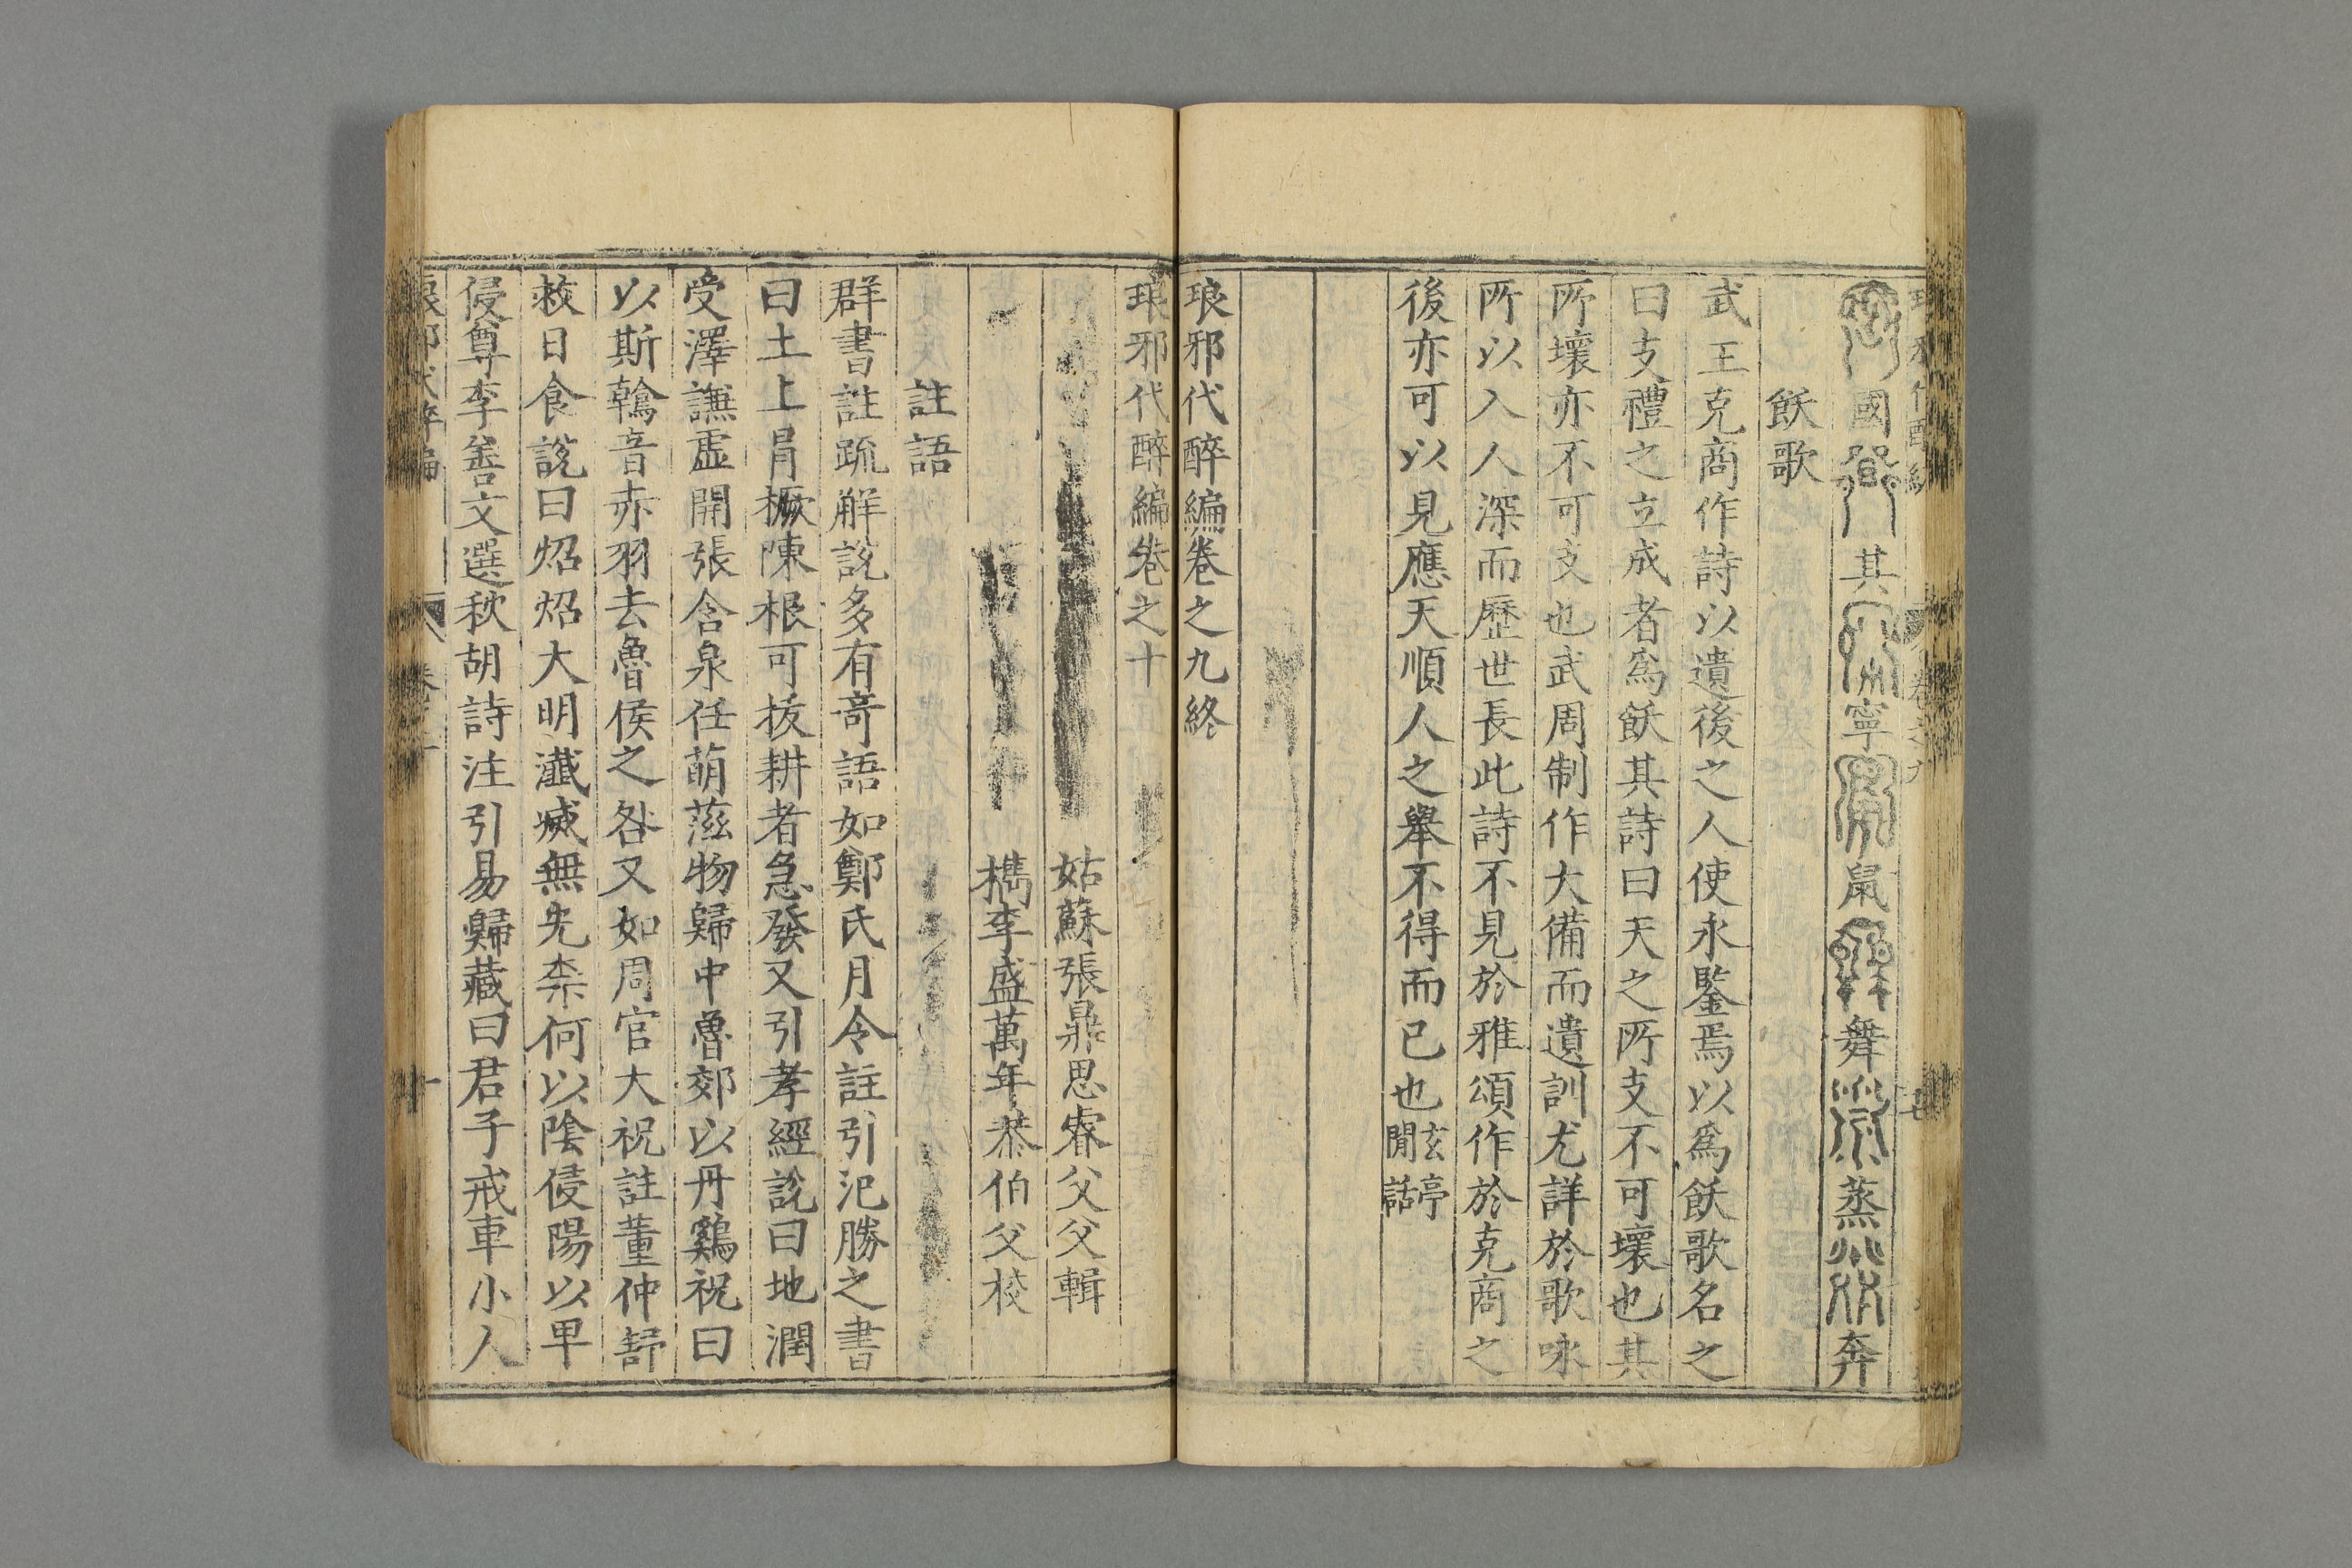 國其寧鼠舞蒸奔
飫歌
武王克商作詩以遺後之人使永鑒焉以爲飫歌名之
曰支禮之立成者爲飫其詩曰天之所支不可壞也其
所壞亦不可支也武周制作大備而遺訓尤詳於歌咏
所以入人深而歷世長此詩不見於雅頌作於克商之
後亦可以見應天順人之舉不得而已也玄亭閒話
琅邪代醉編卷之九終
琅邪代醉編卷之十
姑蘇張鼎思睿父父輯
檇李盛萬年恭伯父校
註語
群書註疏解説多有奇語如鄭氏月令註引氾勝之書
曰土上冐橛陳根可拔耕者急發又引孝經説曰地潤
受澤謙虛開張含泉任萌滋物歸中魯郊以丹鷄祝曰
以斯鶾音赤羽去魯侯之咎又如周官大祝註董仲舒
救日食説曰炤炤大明瀸滅無光柰何以陰侵陽以卑
侵尊李善文選秋胡詩注引易歸藏曰君子戒車小人